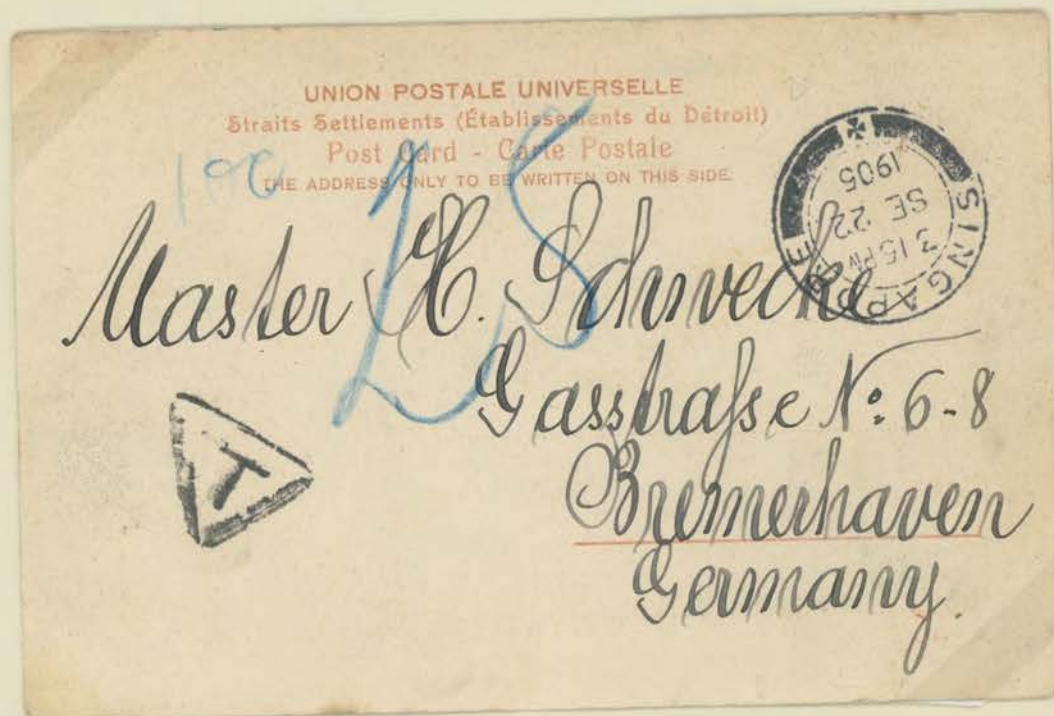 UNION POSTALE UNIVERSELLE
Straits Settlements (Établissements du Détroit)
Post Card - Carte Postale
THE ADDRESS ONLY TO BE WRITTEN ON THIS SIDE.
SINGAPORE
3 15 PM
SE 22
1905
Master H. Schwecke
Gasstraße No: 6-8
Bremerhaven
Germany.
T